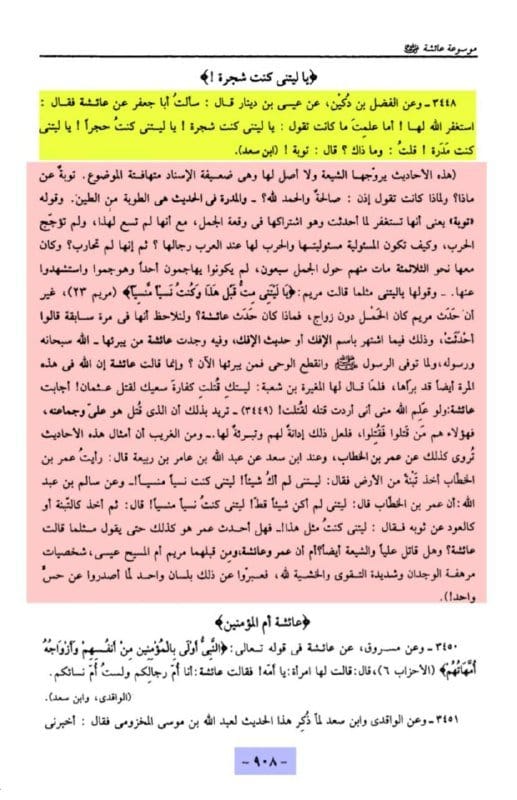 موسوعة عائشة ﷺ
﴿يا ليتنى كنت شجرة !﴾
٣٤٤٨ ـ وعن الفضل بن دُكَيْن، عن عيسى بن دينار قال : سألتُ أبا جعفر عن عائشة فقال :
استغفر الله لها ! أما علمتَ ما كانت تقول : يا ليتنى كنت شجرة ! يا ليتنى كنتُ حجراً ! يا ليتنى
كنت مَدَرة ! قلتُ : وما ذاك ؟ قال : توبة ! (ابن سعد).
(هذه الأحاديث يروّجها الشيعة ولا أصل لها وهى ضعيفة الإسناد متهافتة الموضوع. توبةٌ عن
ماذا؟ ولماذا كانت تقول إذن : صالحةٌ والحمد لله؟ ـ والمدرة فى الحديث هى الطوبة من الطين. وقوله
«توبة» يعنى أنها تستغفر لما أحدثت وهو اشتراكها فى وقعة الجمل، مع أنها لم تسع لهذا، ولم تؤجّج
الحرب، وكيف تكون المسئولية مسئوليتها والحرب لها عند العرب رجالها ؟ ثم إنها لم تحارب؟ وكان
معها نحو الثلاثمئة مات منهم حول الجمل سبعون، لم يكونوا يهاجمون أحداً وهوجموا واستشهدوا
عنها. ـ وقولها ياليتنى مثلما قالت مريم: ﴿يَا لَيْتَنِي مِتُّ قَبْلَ هَذَا وَكُنتُ نَسْيًا مَّنسِيًّا﴾ (مريم ٢٣)، غير
أن حَدَث مريم كان الحَمْل دون زواج، فماذا كان حَدَث عائشة؟ ولنلاحظ أنها فى مرة سابقة قالوا
أحْدَثَتْ، وذلك فيما اشتهر باسم الإفك أو حديث الإفك، وفيه وجدت عائشة من يبرئها ـ الله سبحانه
ورسوله، ولما توفى الرسول ﷺ وانقطع الوحى فمن يبرئها الآن ؟ وإنما قالت عائشة إن الله فى هذه
المرة أيضاً قد برأها، فلمّا قال لها المغيرة بن شعبة: ليستكِ قُتلتِ كفارة سعيك لقتل عثمان! أجابت
عائشة: ولو علِم الله منى أنى أردت قتله لقُتلت! (٣٤٤٩) ـ تريد بذلك أن الذى قُتل هو علىّ وجماعته،
فهؤلاء هم مَن قَتَلوا فقُتِلوا، فلعل ذلك إدانة لهم وتبرئة لها. ـ ومن الغريب أن أمثال هذه الأحاديث
تُروى كذلك عن عمر بن الخطاب، وعند ابن سعد عن عبد الله بن عامر بن ربيعة قال : رأيتُ عمر بن
الخطاب أخذ تِبْنَةً من الأرض فقال: ليستنى لم أكُ شيئاً! ليتنى كنت نسياً منسياً! ـ وعن سالم بن عبد
الله: أن عمر بن الخطّاب قال: ليتنى لم أكن شيئاً قطّ! ليتنى كنتُ نسياً منسياً! قال: ثم أخذ كالتبنة أو
كالعود عن ثوبه فقال : ليتنى كنتُ مثل هذا! ـ فهل أحدث عمر هو كذلك حتى يقول مثلما قالت
عائشة؟ وهل قاتل علياً والشيعة أيضاً؟ أم أن عمر وعائشة، ومن قبلهما مريم أم المسيح عيسى، شخصيات
مرهفة الوجدان وشديدة التقوى والخشية لله، فعبّروا عن ذلك بلسان واحد لما أصدروا عن حسٍّ
واحد!).
﴿عائشة أم المؤمنين﴾
٣٤٥٠ ـ وعن مسروق، عن عائشة فى قوله تعالى: ﴿النَّبِيُّ أَوْلَى بِالْمُؤْمِنِينَ مِنْ أَنفُسِهِمْ وَأَزْوَاجُهُ
أُمَّهَاتُهُمْ﴾ (الأحزاب ٦)، قال: قالت لها امرأة: يا أمّه! فقالت عائشة: أنا أم رجالكم ولستُ أمّ نسائكم.
(الواقدى، وابن سعد).
٣٤٥١ ـ وعن الواقدى وابن سعد لمّا ذُكِر هذا الحديث لعبد الله بن موسى المخزومى فقال : أخبرنى
- ٩٠٨ -